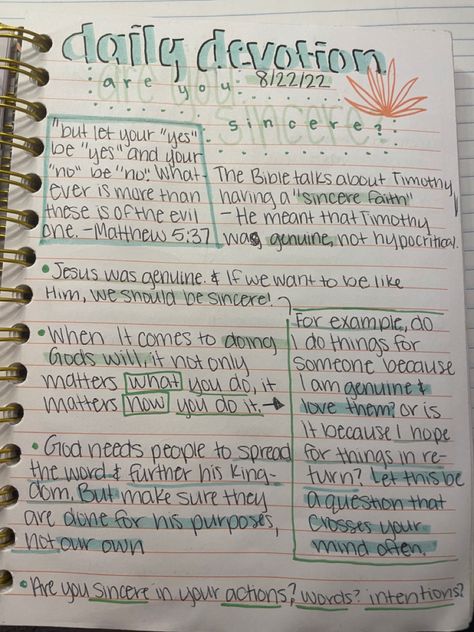 daily devotion
8/22/22
are you
sincere?
"but let your "yes"
be "yes" and your
"no" be "no". What-
ever is more than
these is of the evil
one. -Matthew 5:37
The Bible talks about Timothy
having a "sincere faith"
- He meant that Timothy
was genuine, not hypocritical.
• Jesus was genuine. & If we want to be like
Him, we should be sincere!
• When it comes to doing
Gods will, it not only
matters what you do, it
matters how you do it. →
For example, do
I do things for
someone because
I am genuine &
love them? or is
it because I hope
for things in re-
turn? Let this be
a question that
crosses your
mind often.
• God needs people to spread
the word & further his king-
dom. But make sure they
are done for his purposes,
not our own
• Are you sincere in your actions? words? intentions?